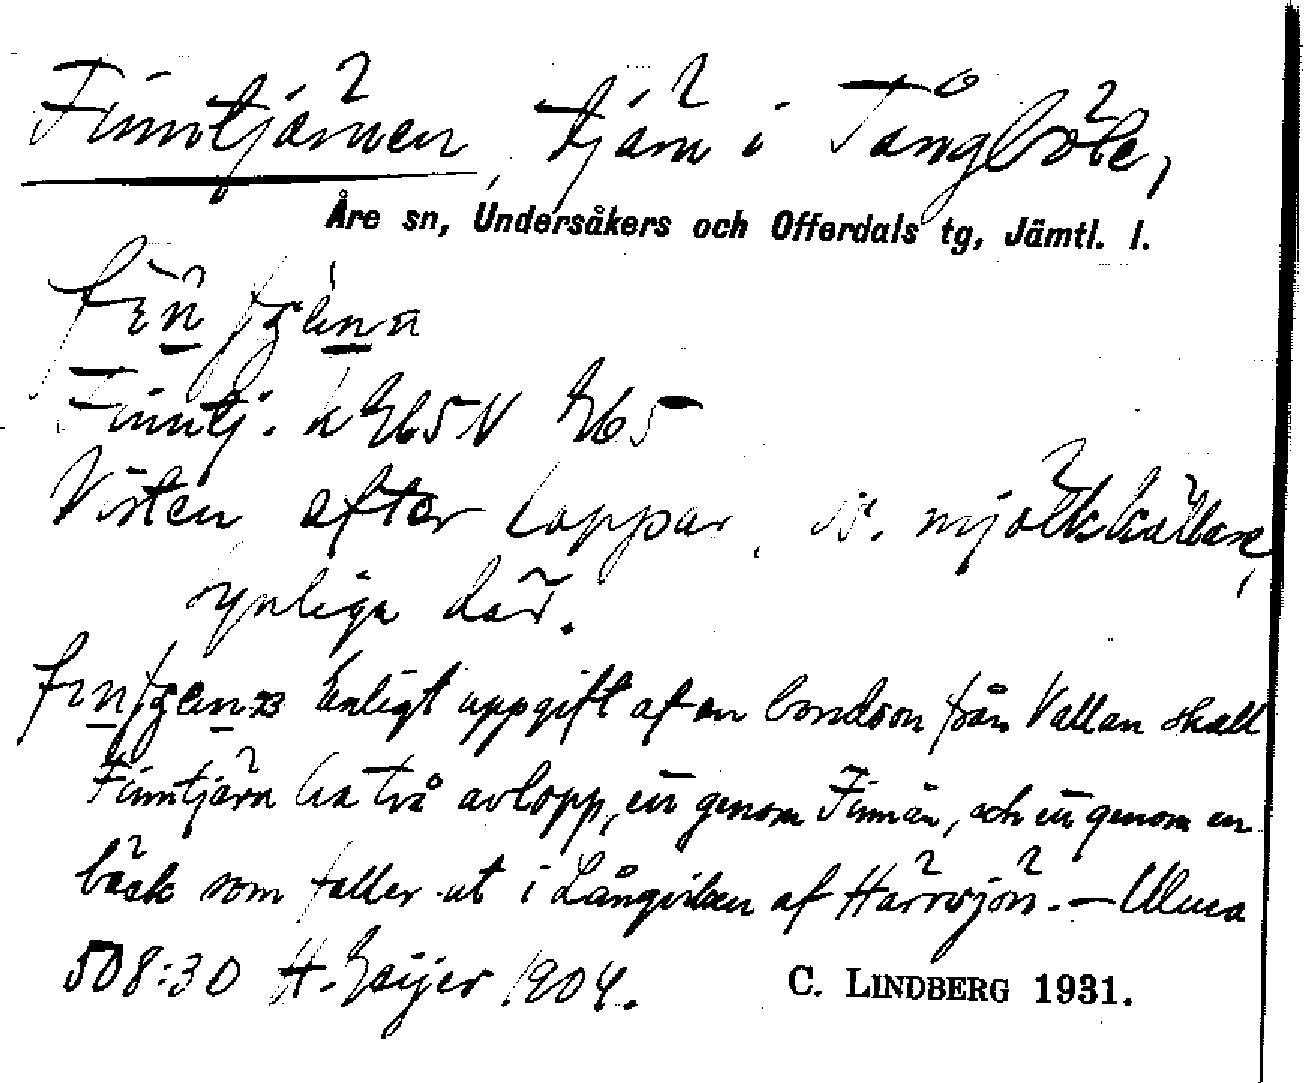 Finntjärnen, tjärn i Tångböle,
Åre sn, Undersåkers och Offerdals tg, Jämtl. l.
Finntj. k
Visten efter lappar, is. mjölkkällare,
synliga där.
Enligt uppgift af en bondson från Vallan skall
Finntjärn ha två avlopp, ett genom Finnån, och ett genom en
bäck som faller ut i Långviken af Härrsjön. — Ulma
508:30 H. Geijer 1904. C. LINDBERG 1931.